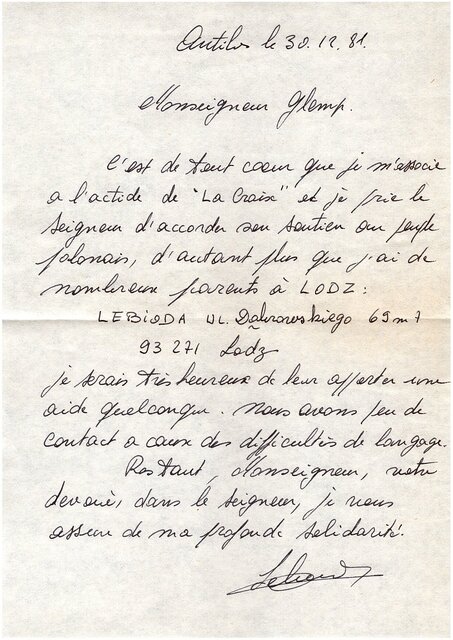 Antibes le 30.12.81.
Monseigneur Glemp.
C'est de tout coeur que je m'associe
a l'actide de "La Croix" et je prie le
Seigneur d'accorder son soutien au peuple
polonais, d'autant plus que j'ai de
nombreux parents à LODZ :
LEBIODA UL. Dabrowskiego 69 m 7
93 271 Lodz
je serais très heureux de leur apporter une
aide quelconque. Nous avons peu de
contact a cause des difficultés de langage.
Restant, Monseigneur, votre
devoué, dans le seigneur, je vous
assure de ma profonde solidarité.